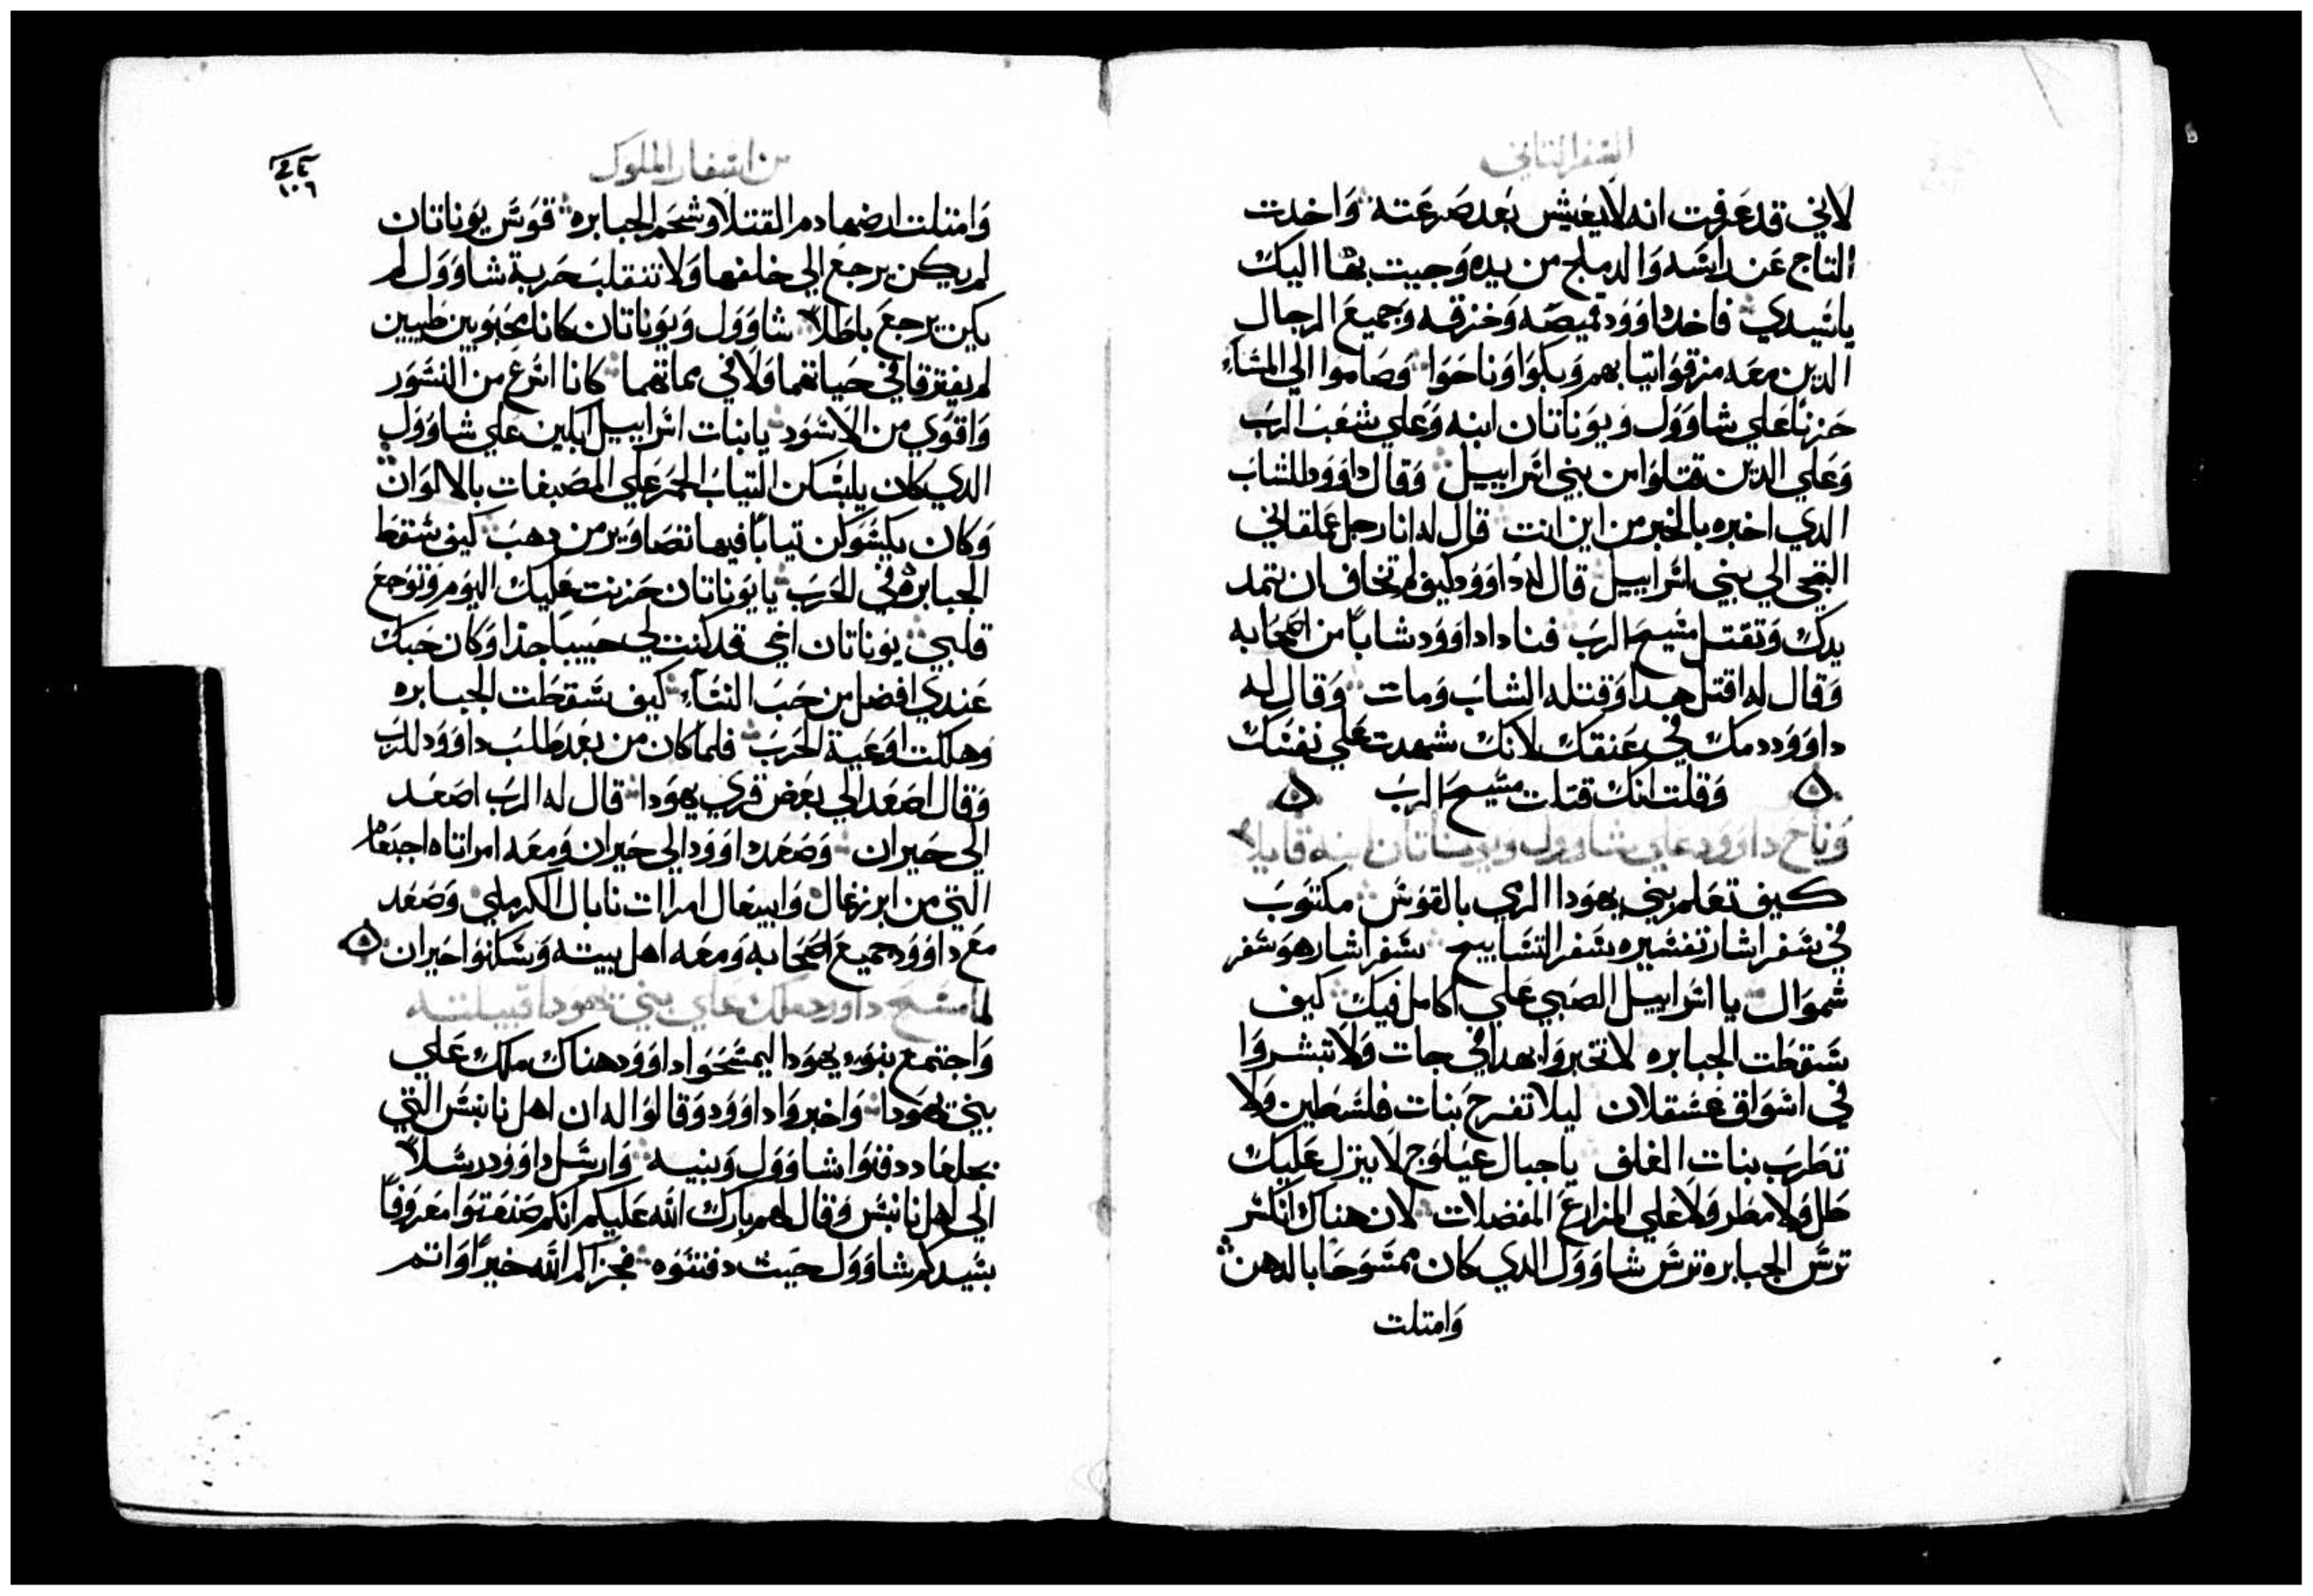 السفر الثاني
لاني قد عرفت انه لا يعيش بعد صرعته واخدت
التاج عن راسه والدملج من يده وجيت بها اليك
يا سيدي فاخد داوود قميصه وخزقه وجميع الرجال
الدين معه مزقوا تيابهم وبكوا وناحوا وصاموا الي المساء
حزنا علي شاوول ويوناتان ابنه وعلي شعب الرب
وعلي الدين قتلوا من بني اسراييل وقال داوود للشاب
الدي اخبره بالخبر من اين انت قال له انا رجل عملقاني
التجي الي بني اسراييل قال له داوود كيف لم تخاف ان تمد
يدك وتقتل مسيح الرب فنادا داوود شابا من اصحابه
وقال له اقتل هدا وقتله الشاب ومات وقال له
داوود دمك في عنقك لانك شهدت علي نفسك
وقلت انك قتلت مسيح الرب
وناح داوود علي شاوول ويوناتان ابنه قايلا
كيف تعلم بني يهودا الري بالقوس مكتوب
في سفر اشار تفسيره سفر التسابيح سفر اشار هو سفر
شموال يا اسراييل الصبي علي اكامل فيك كيف
سقطت الجبابره لا تخبروا بهدا في جات ولا تبشروا
في اسواق عسقلان ليلا تفرح بنات فلسطين ولا
تطرب بنات الغلف يا جبال عيلوج لا ينزل عليك
طل ولا مطر ولا علي المزارع المفضلات لان هناك انكسر
ترس الجبابره ترس شاوول الدي كان ممسوحا بالدهن
وامتلت
من اسفار الملوك
١٠٦
وامتلت ارضها دم القتلا وشحم الجبابره قوس يوناتان
لم يكن يرجع الي خلفها ولا تنقلب حربة شاوول لم
يكن يرجع باطلا شاوول ويوناتان كانا محبوبين طيبين
لم يفترقا في حياتهما ولا في مماتهما كانا اسرع من النسور
واقوي من الاسود يا بنات اسراييل ابكين علي شاوول
الدي كان يلبسكن التياب الحمر علي المصبغات بالالوان
وكان يكسوكن تيابا فيها تصاوير من دهب كيف سقط
الجبابره في الحرب يا يوناتان حزنت عليك اليوم وتوجع
قلبي يوناتان اخي قد كنت لي حبيبا جدا وكان حبك
عندي افضل من حب النساء كيف سقطت الجبابره
وهلكت اوعية الحرب فلما كان من بعد طلب داوود للرب
وقال اصعد الي بعض قري يهودا قال له الرب اصعد
الي حبران وصعد داوود الي حبران ومعه امراتاه اجنعام
التي من ابرزعال وابيغال امرات نابال الكرملي وصعد
مع داوود جميع اصحابه ومعه اهل بيته وسكنوا حبران
لما مسح داوود ملك علي بني يهودا قبيلته
واجتمع بنوه يهودا ليمسحوا داوود هناك ملك علي
بني يهودا واخبروا داوود وقالوا له ان اهل نابس التي
بجلعاد دفنوا شاوول وبنيه وارسل داوود رسلا
الي اهل نابس وقال لهم بارك الله عليكم انكم صنعتوا معروفا
بسيدكم شاوول حيت دفنتوه فجزاكم الله خيرا وانتم